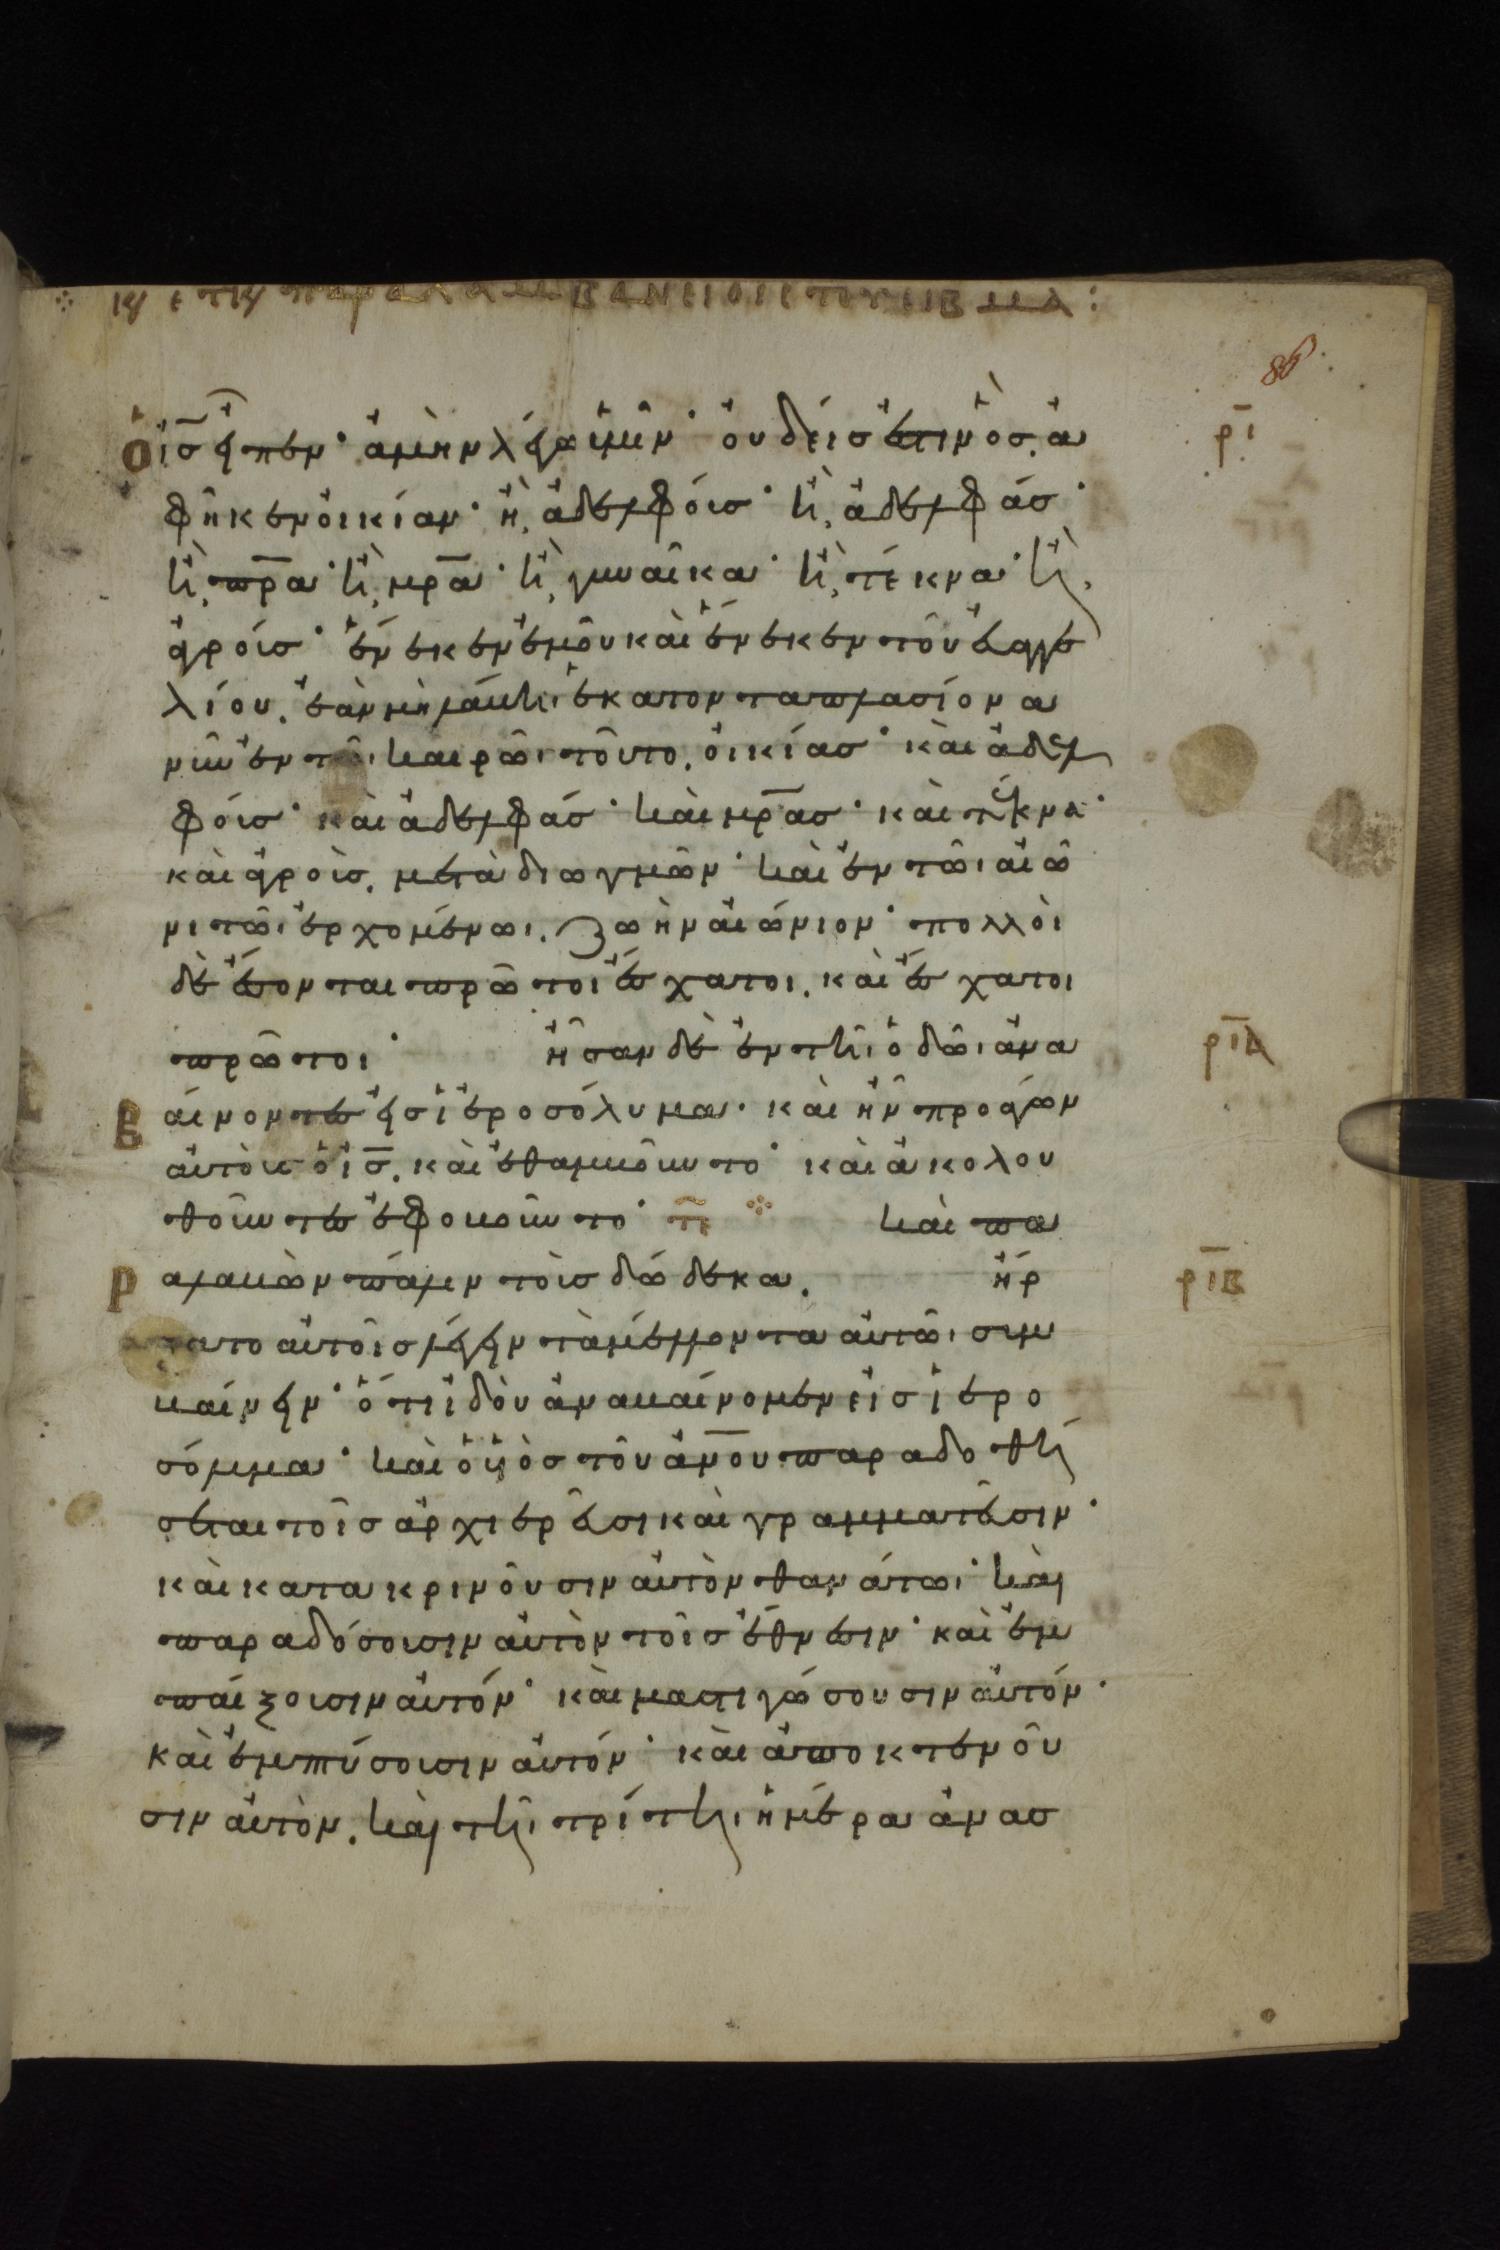 86
ὁ ἰσ̅ εἶπεν· ἀμὴν λέγω ὑμῖν· οὐδείς ἐστιν ὃσ, ἀ
φῆκεν οἰκίαν· ἢ, ἀδελφούσ· ἢ, ἀδελφάσ·
ἢ, πρ̅α· ἢ, μρ̅α· ἢ, γυναῖκα· ἢ, τέκνα· ἢ,
ἀγρούσ· ἕνεκεν ἐμοῦ καὶ ἕνεκεν τοῦ εὐαγγε
λίου. ἐὰν μὴ λάβηι ἑκατονταπλασίονα
νῦν ἐν τῶι καιρῶι τοῦτο, οἰκίασ· καὶ ἀδελ
φούσ· καὶ ἀδελφάσ· καὶ μρ̅ασ· καὶ τέκνα·
καὶ ἀγροὺσ, μετὰ διωγμῶν· καὶ ἐν τῶι αἰῶ
νι τῶι ἐρχομένωι. ζωὴν αἰώνιον· πολλοὶ
δὲ ἔσονται πρῶτοι ἔσχατοι. καὶ ἔσχατοι
πρῶτοι· ἦσαν δὲ ἐν τῆι ὁδῶι ἀνα
βαίνοντεσ εἰσ ἱεροσόλυμα· καὶ ἦν προάγων
αὐτοὺσ ὁ ἰσ̅. καὶ ἐθαμβοῦντο· καὶ ἀκολου
θοῦντεσ ἐφοβοῦντο· τε καὶ πα
ραλαβὼν πάλιν τοὺσ δώδεκα. ἤρ
ξατο αὐτοῖσ λέγειν τὰ μέλλοντα αὐτῶι συμ
βαίνειν· ὅτι ἰδοὺ ἀναβαίνομεν εἰσ ἱερο
σόλυμα· καὶ ὁ υἱὸσ τοῦ ἀν̅ου παραδοθή
σεται τοῖσ ἀρχιερεῦσι καὶ γραμματεῦσιν·
καὶ κατακρινοῦσιν αὐτὸν θανάτωι· καὶ
παραδώσουσιν αὐτὸν τοῖσ ἔθνεσιν· καὶ ἐμ
παίξουσιν αὐτόν· καὶ μαστιγώσουσιν αὐτόν·
καὶ ἐμπτύσουσιν αὐτόν· καὶ ἀποκτενοῦ
σιν αὐτὸν. καὶ τῆι τρίτηι ἡμέρα ἀνασ
ρι̅
ρια̅
ριβ̅